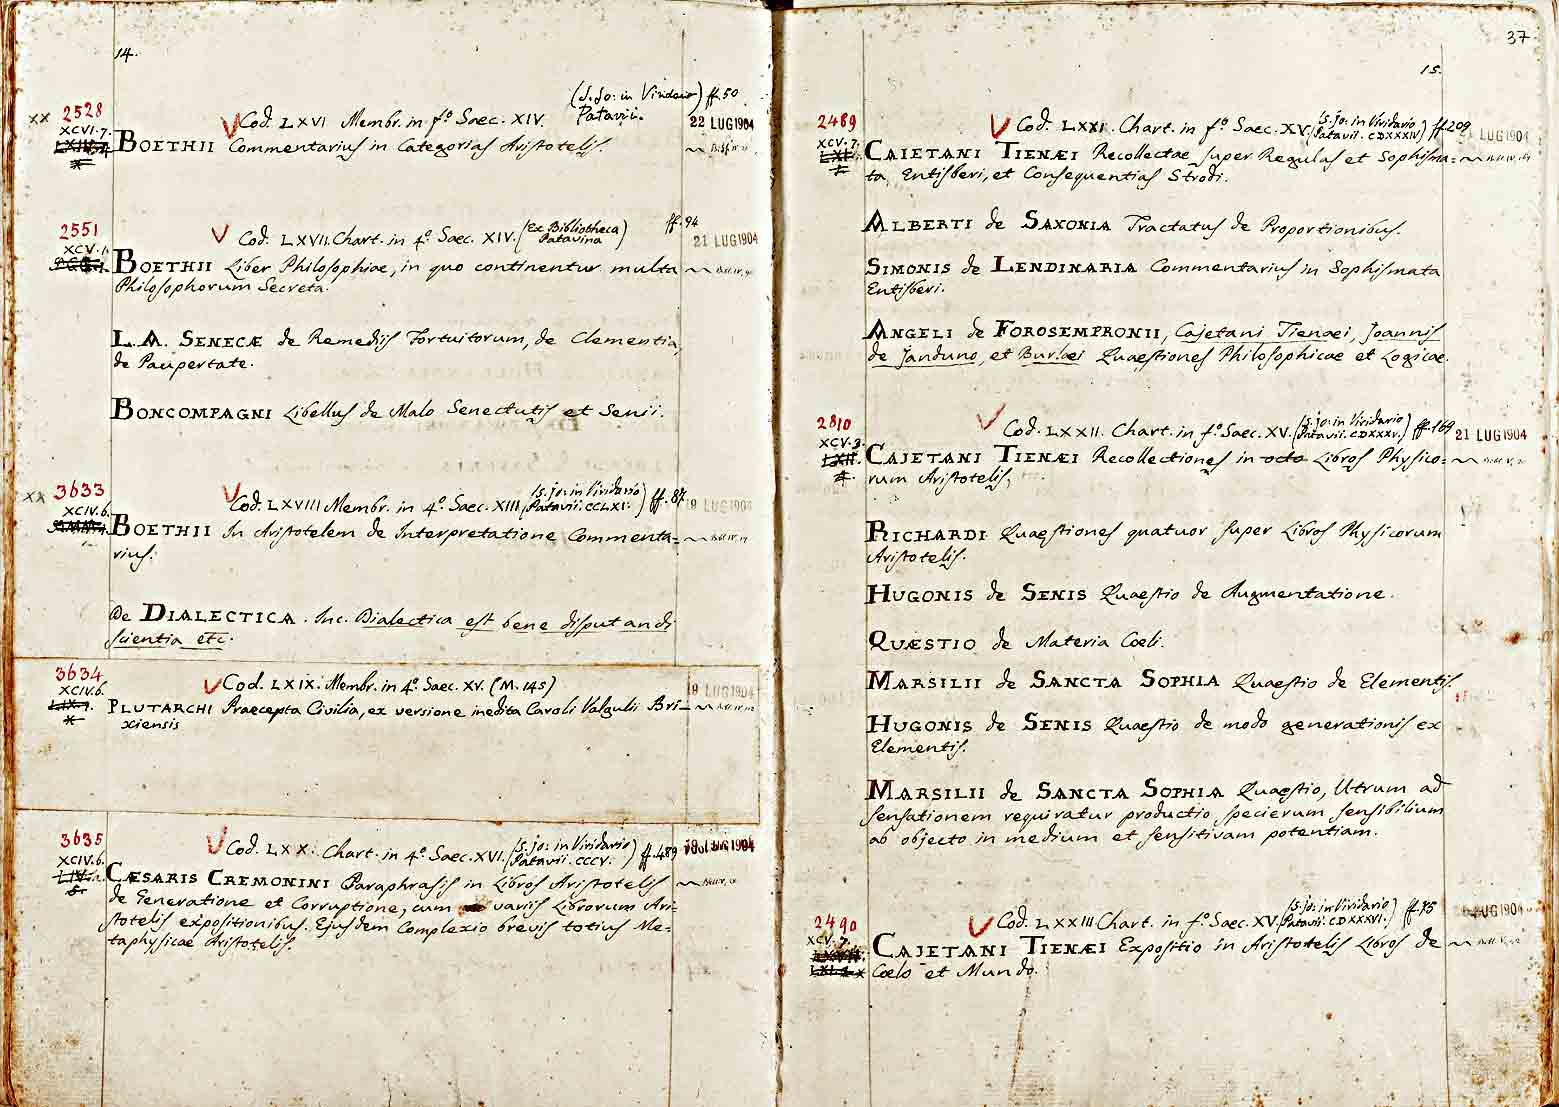 14.
(S. Jo: in Viridario) ff. 50
Patavii.
xx 2528
Cod. LXVI Membr. in f.º Saec. XIV.
22 LUG 1904
XCVI. 7.
BOETHII Commentarius in Categorias Aristotelis.
2551
Cod. LXVII. Chart. in 4.º Saec. XIV. (Ex Bibliotheca Patavina) ff. 94
21 LUG 1904
XCV. 1.
BOETHII Liber Philosophiae, in quo continentur multa
Philosophorum Secreta.
L. A. SENECÆ de Remediis Fortuitorum, de Clementia,
de Paupertate.
BONCOMPAGNI Libellus de Malo Senectutis et Senii.
xx 3633
Cod. LXVIII Membr. in 4.º Saec. XIII (S. Jo: in Viridario Patavii. CCLXI.) ff. 87
19 LUG 1904
XCIV. 6.
BOETHII In Aristotelem de Interpretatione Commenta=
rius.
De DIALECTICA. Inc. Dialectica est bene disputandi
scientia etc.
3634
Cod. LXIX. Membr. in 4.º Saec. XV. (M. 145)
19 LUG 1904
XCIV. 6.
PLUTARCHI Praecepta Civilia, ex versione inedita Caroli Valgulii Bri-
xiensis
3635
Cod. LXX. Chart. in 4.º Saec. XVI. (S. Jo: in Viridario Patavii. CCCV.) ff. 489
LUG 1904
XCIV. 6.
CÆSARIS CREMONINI Paraphrasis in Libros Aristotelis
de Generatione et Corruptione, cum variis Librorum Ari-
stotelis expositionibus. Ejusdem Complexio brevis totius Me-
taphysicae Aristotelis.
37
15.
2489
Cod. LXXI. Chart. in f.º Saec. XV. (S. Jo: in Viridario Patavii. CDXXXIV) ff. 209
21 LUG 1904
XCV. 7.
CAIETANI TIENÆI Recollectae super Regulas et Sophisma=
ta Entisberi, et Consequentias Strodi.
ALBERTI de SAXONIA Tractatus de Proportionibus.
SIMONIS de LENDINARIA Commentarius in Sophismata
Entisberi.
ANGELI de FOROSEMPRONII, Cajetani Tienaei, Joannis
de Janduno, et Burlaei Quaestiones Philosophicae et Logicae.
2810
Cod. LXXII. Chart. in f.º Saec. XV. (S. Jo: in Viridario Patavii. CDXXXV.) ff. 169
21 LUG 1904
XCV. 3.
CAJETANI TIENÆI Recollectiones in octo Libros Physico=
rum Aristotelis,
RICHARDI Quaestiones quatuor super Libros Physicorum
Aristotelis.
HUGONIS de SENIS Quaestio de Augmentatione.
QUÆSTIO de Materia Coeli.
MARSILII de SANCTA SOPHIA Quaestio de Elementis.
HUGONIS de SENIS Quaestio de modo generationis ex
Elementis.
MARSILII de SANCTA SOPHIA Quaestio, Utrum ad
sensationem requiratur productio specierum sensibilium
ab objecto in medium et sensitivam potentiam.
2490
Cod. LXXIII Chart. in f.º Saec. XV. (S. Jo: in Viridario Patavii. CDXXXVI.) ff. 75
LUG 1904
XCV. 7.
CAJETANI TIENÆI Expositio in Aristotelis Libros de
Coelo et Mundo.